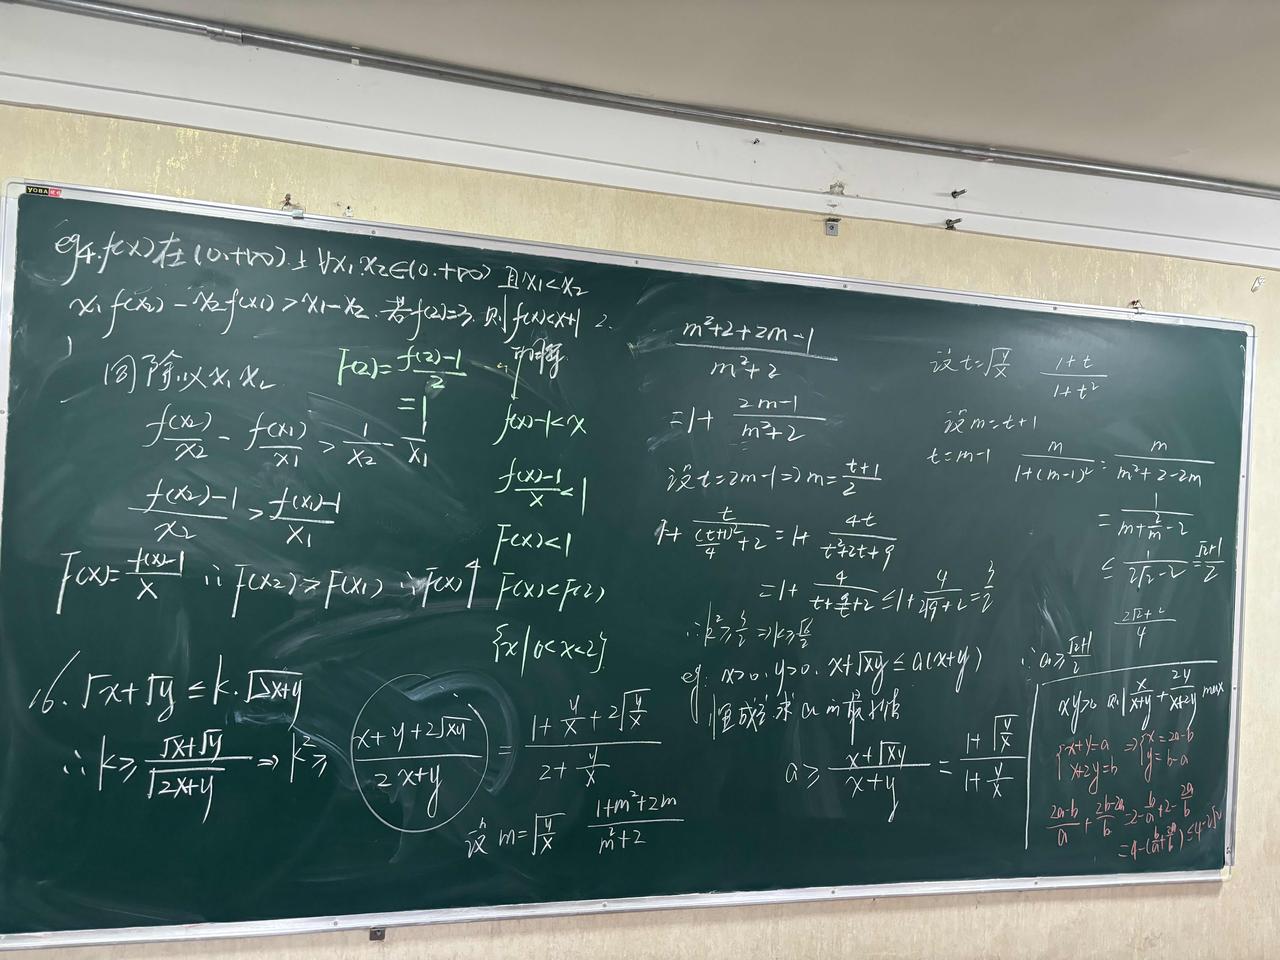 YOBA
eg4. f(x)在(0.+∞)上∀x₁.x₂∈(0.+∞) 且x₁<x₂
x₁f(x₂)-x₂f(x₁)>x₁-x₂.若f(2)=3.则f(x)<x+1
同除以x₁x₂
f(x₂)/x₂ - f(x₁)/x₁ > 1/x₂ - 1/x₁
(f(x₂)-1)/x₂ > (f(x₁)-1)/x₁
F(x)=(f(x)-1)/x ∴F(x₂)>F(x₁) ∴F(x)↑
F(2)=(f(2)-1)/2
=1
的解
f(x)-1<x
(f(x)-1)/x<1
F(x)<1
F(x)<F(2)
{x|0<x<2}
16. √x+√y≤k.√(2x+y)
∴k≥(√x+√y)/√(2x+y) ⇒ k²≥ (x+y+2√xy)/(2x+y) = (1+y/x+2√(y/x))/(2+y/x)
设 m=√(y/x) (1+m²+2m)/(m²+2)
(m²+2+2m-1)/(m²+2)
=1+(2m-1)/(m²+2)
设t=2m-1⇒m=(t+1)/2
1+t/((t+1)²/4+2)=1+4t/(t²+2t+9)
=1+4/(t+9/t+2)≤1+4/(2√9+2)=3/2
∴k²≥3/2⇒k≥√6/2
eg. x>0.y>0. x+√xy≤a(x+y)
恒成立求a的最小值
a≥(x+√xy)/(x+y)=(1+√(y/x))/(1+y/x)
设t=√(y/x) (1+t)/(1+t²)
设m=t+1
t=m-1 m/(1+(m-1)²)=m/(m²+2-2m)
=1/(m+2/m-2)
≤1/(2√2-2)=(√2+1)/2
(2√2+2)/4
∴a≥(√2+1)/2
xy>0 则 x/(x+y)+2y/(x+2y) max
{x+y=a x+2y=b ⇒{x=2a-b y=b-a
(2a-b)/a+(2b-2a)/b=2-b/a+2-2a/b
=4-(b/a+2a/b)≤4-2√2